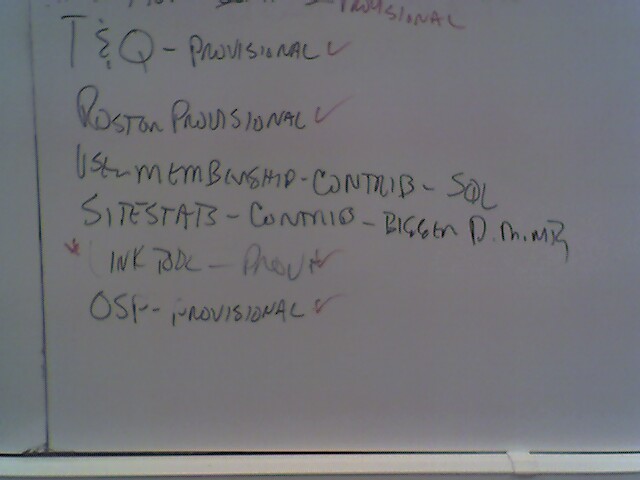 PROVISIONAL
T & Q - PROVISIONAL ✓
ROSTER PROVISIONAL ✓
USER MEMBERSHIP - CONTRIB - SQL
SITESTATS - CONTRIB - BIGGER
LINK TOOL - PROV ✓
OSP - PROVISIONAL ✓